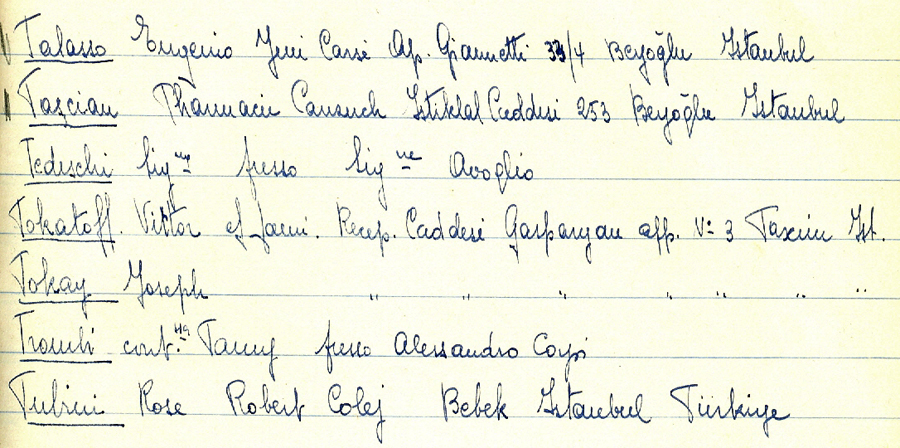 Talasso Eugenio Yeni Carsi Ap. Giannetti 33/4 Beyoğlu Istanbul
Taşcian Pharmacie Canzuch Istiklal Caddesi 253 Beyoğlu Istanbul
Tedeschi Sig.na presso Sig.ne Avoglio
Tokatoff. Victor et fam. Recep. Caddesi Gasparyan app. No 3 Taxim Ist.
Tokay Joseph " " " " " " "
Trombi cont.na Fanny presso Alessandro Corpi
Tubini Rose Robert Colej Bebek Istanbul Türkiye